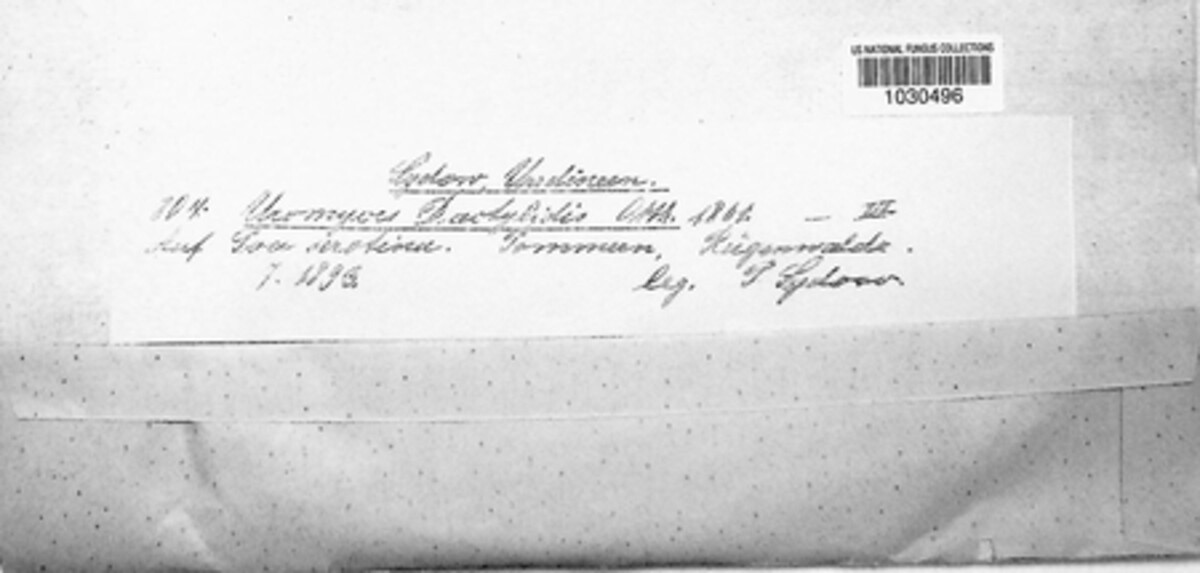 US NATIONAL FUNGUS COLLECTIONS
1030496
Sydow, Uredineen.
Uromyces Dactylidis Otth. 1861. — III.
Auf Poa serotina. Pommern, Rügenwalde.
7. 189
leg. P Sydow.